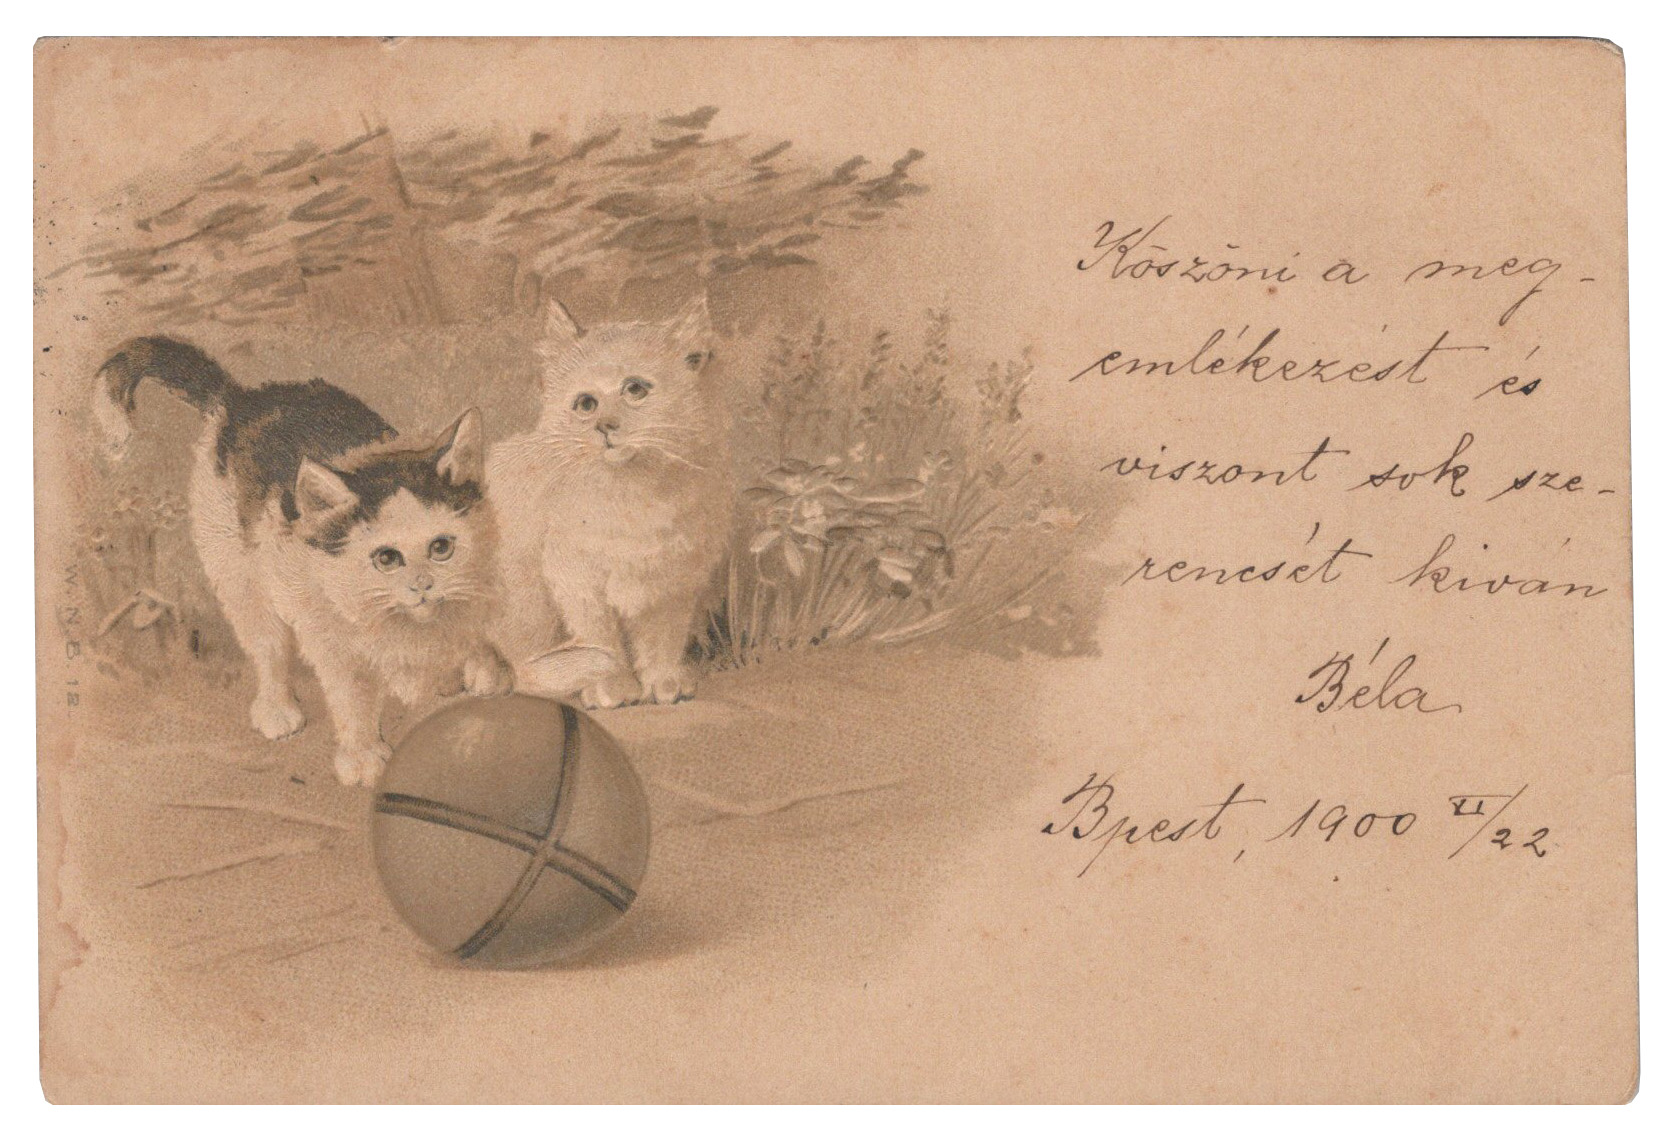 Köszöni a meg-
emlékezést és
viszont sok sze-
rencsét kiván
Béla
Bpest, 1900 XI/22
W.N.B. 12.